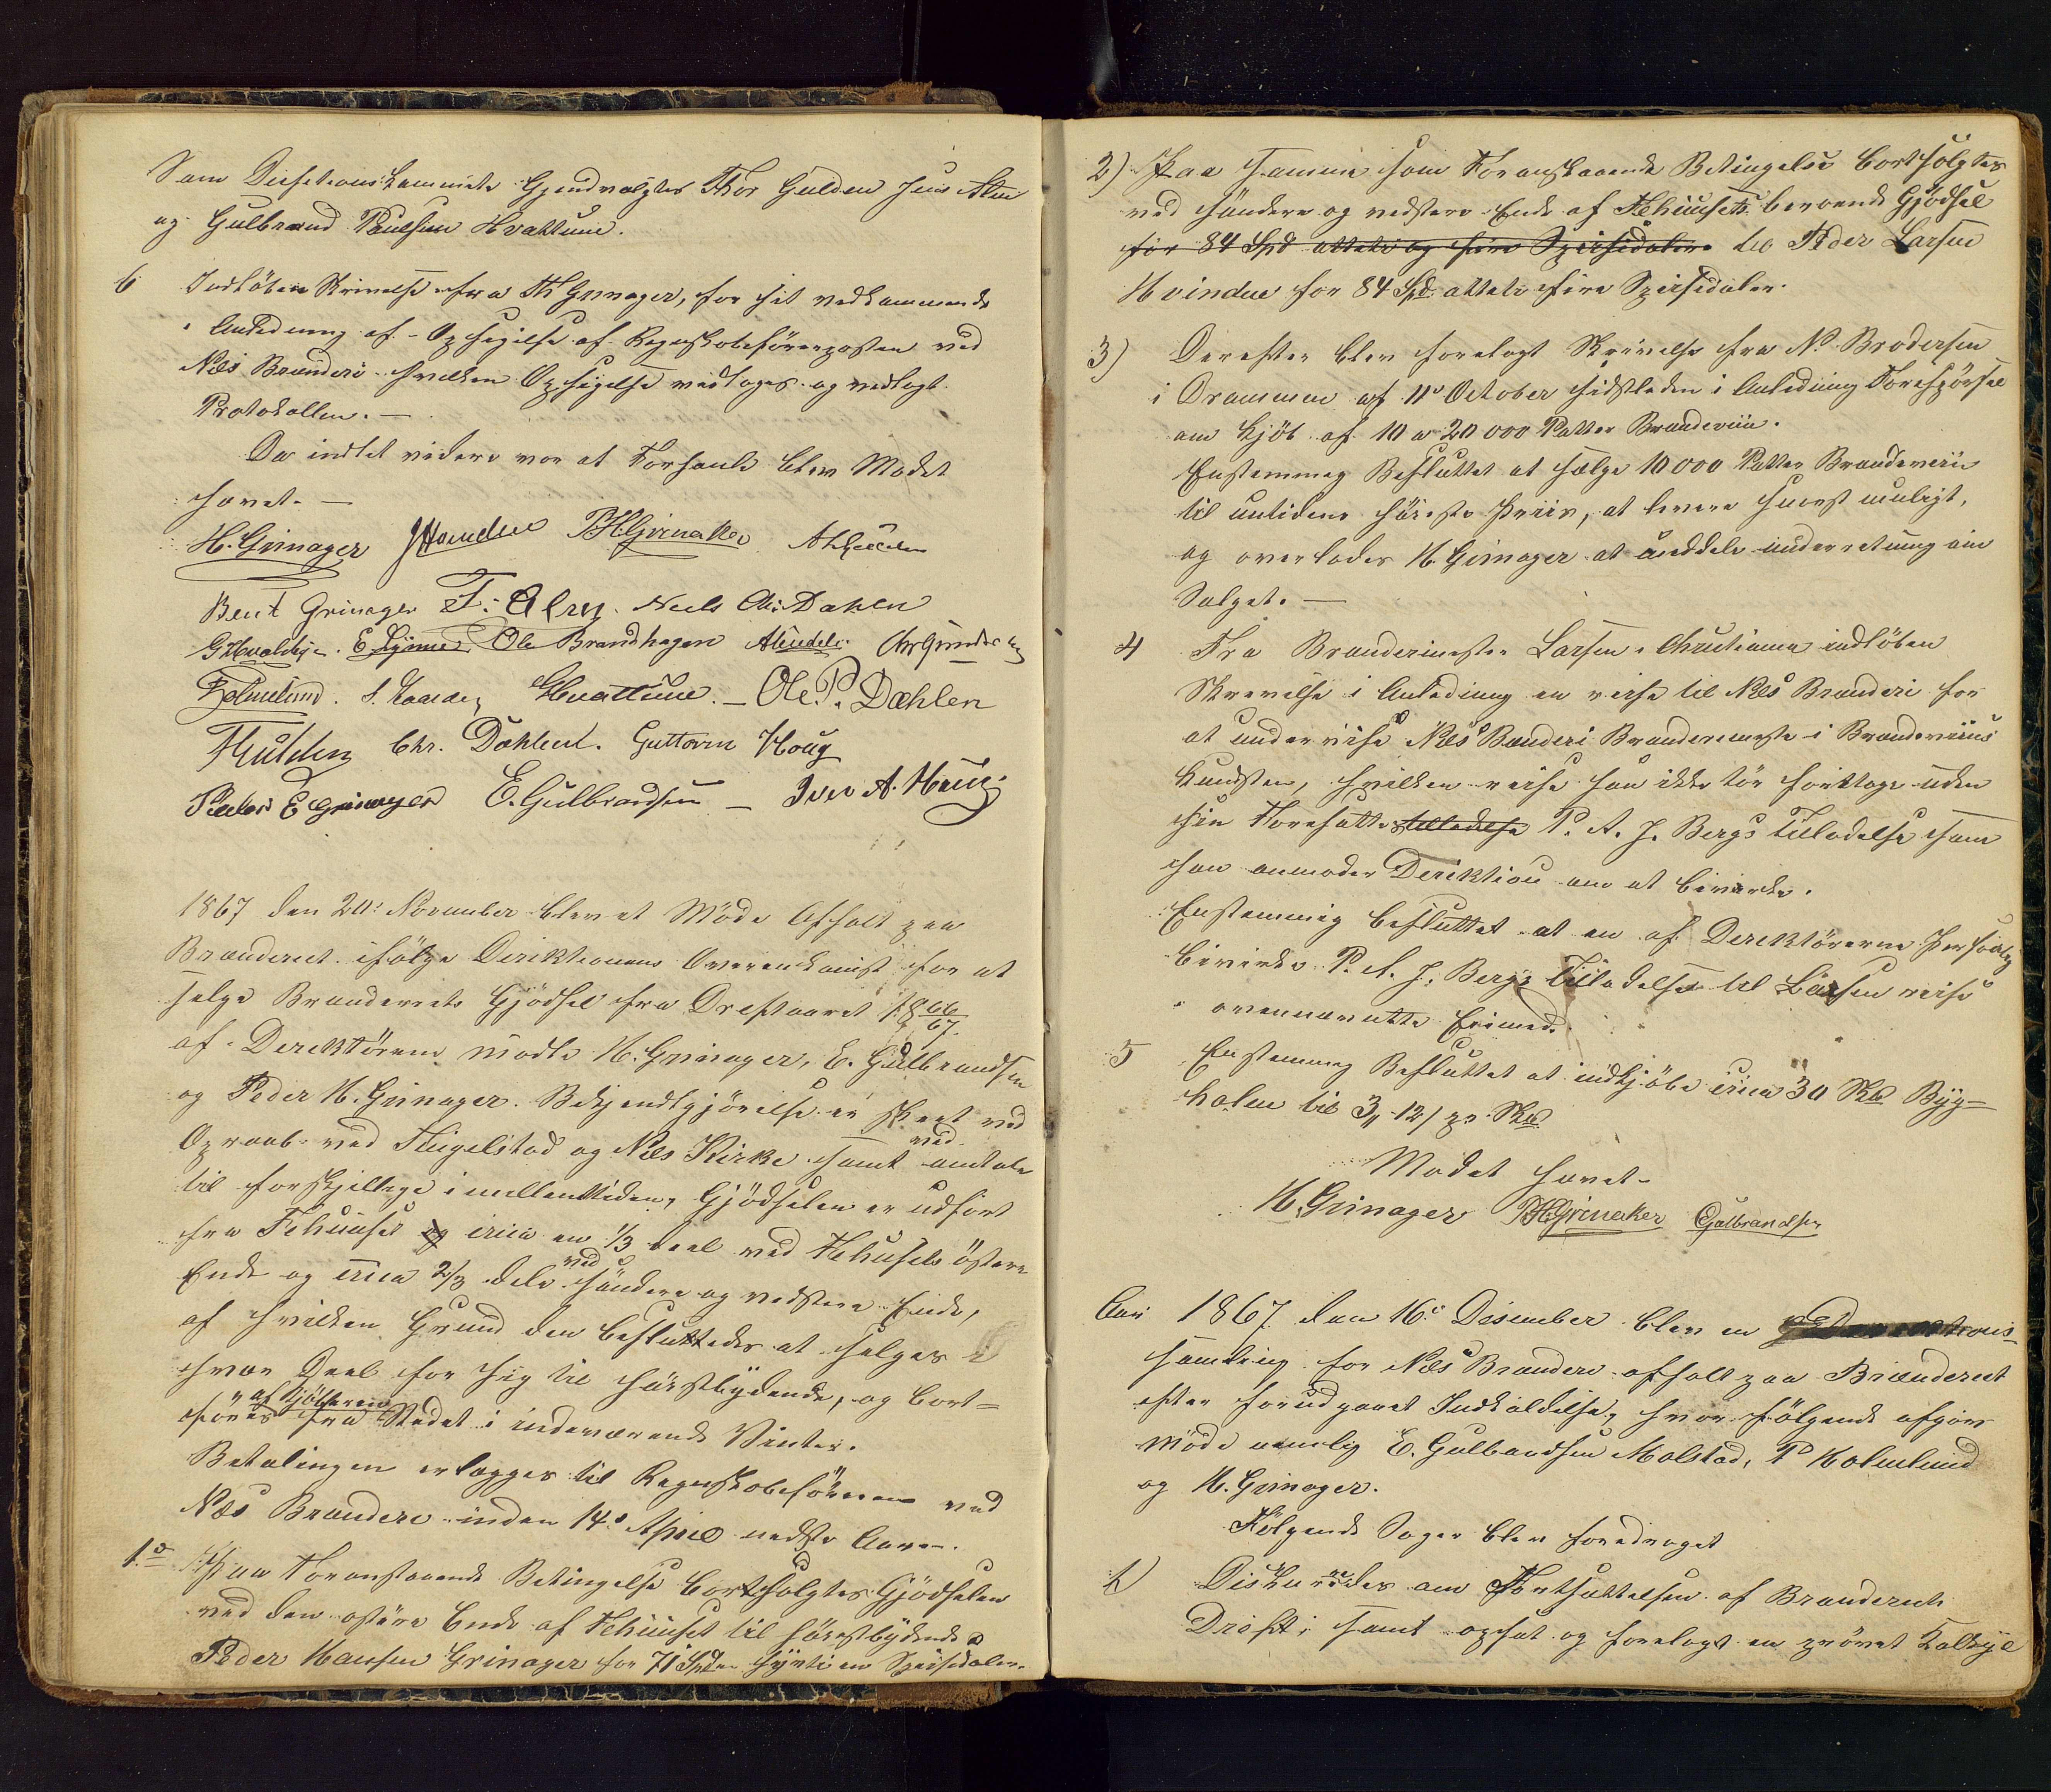 Som Decisionskommite Gjendvalgtes Thor Gulden Jens Alm
og Gulbrand Paulsen Hvattum.
6 Indløben Skrivelse fra Th Grinager, for sit vedkommende
i Anledning af Opsigelse af Regnskabsførerposten ved
Næs Brænderi hvilken Opsigelse vedtoges og vedlagt
Protokollen. —
Da indtet videre var at Forhandle blev Mødet
hævet. —
H. Grinager PHGrinaker
Bent Grinager Neels Chr. Dahlen
Ole Brandhagen
GHvattum. — Ole. P. Dæhlen
Chr. Dæhlen. Guttorm Houg
Peder E Grinager E. Gulbrandsen — Iver A. Houg
1867 den 20. November blev et Møde Afholt paa
Brænderiet ifølge Direktionens Overenskomst for at
selge Brænderiets Gjødsel fra Driftsaaret 1866/67.
af Derektørene mødte H. Grinager, E. Gulbrandsen
og Peder H. Grinager. Bekjendtgjørelse er skeet ved
Opraab ved Tingelstad og Næs Kirke samt ved omtale
til forskjellige imellemtiden, Gjødselen er udført
fra Fehuuset og circa en 1/3 deel ved Fehusets østere
Ende og circa 2/3 dele ved søndere og vestere Ende,
af hvilken Grund den besluttedes at selges
hver Deel for sig til høistbydende, og bort=
føres af Kjøberen fra Stedet i indeværende Vinter.
Betalingen erlægges til Regnskabsføreren ved
Næs Brænderi inden 14. April næste Aar.
1. Paa Foranstaaende Betingelse bortsolgtes Gjødselen
ved den østere Ende af Fehuuset til høiestbydende
Peder Hansen Grinager for 71 Spd. syvti en Speisedaler.
2) Paa samme som Foranstaaende Betingelse bortsolgtes
ved søndere og vestere Ende af Fehuusets beroende Gjødsel
for 84 Spd otteti og fire Speisedaler til Peder Larsen
Hvinden for 84 Spd. otteti fire Speisedaler.
3) Derefter blev forelagt Skrivelse fra N. Brodersen
i Drammen af 11. October sidstleden i Anledning Forespørsel
om Kjøb af 10 a 20 000 Potter Brændeviin.
Enstemmig Besluttet at sælge 10 000 Potter Brændeviin
til nutidens høieste Priis, at levere snarest muligt,
og overlodes H. Grinager at meddele underretning om
Salget. —
4 Fra Brænderimester Larsen i Christiania indløben
Skrivelse i Anledning en reise til Næs Brænderi for
at undervise Næs Brænderi Brænderimester i Brændeviins
Kunsten, hvilken reise han ikke tør foretage uden
sin Foresattes tilladelse P. A. J. Bergs Tilladelse som
han anmoder Direktion om at bevirke.
Enstemmig besluttet at en af Derektørerne Personlig
bevirke P. A. J. Bergs Tilladelse til Larsen reise
i ovennævnte Eiemed.
5 Enstemmig Besluttet at indkjøbe circa 30 Skb Byg=
halm til 3" 12/ pr. Skb.
Mødet hævet.
H. Grinager PHGrinaker EGulbrandsen
Aar 1867 den 16. Desember blev en
samling for Næs Brænderi afholt paa Brænderiet
efter forudgaaet Indkaldelse, hvor følgende afgav
Møde nemlig E. Gulbrandsen Molstad, P Holmlund
og H. Grinager.
Følgende Sager blev foredraget
1) Diskureredes om Fortsættelsen af Brænderiets
Drift; samt opsat og forelagt en prøvet Kalkyl